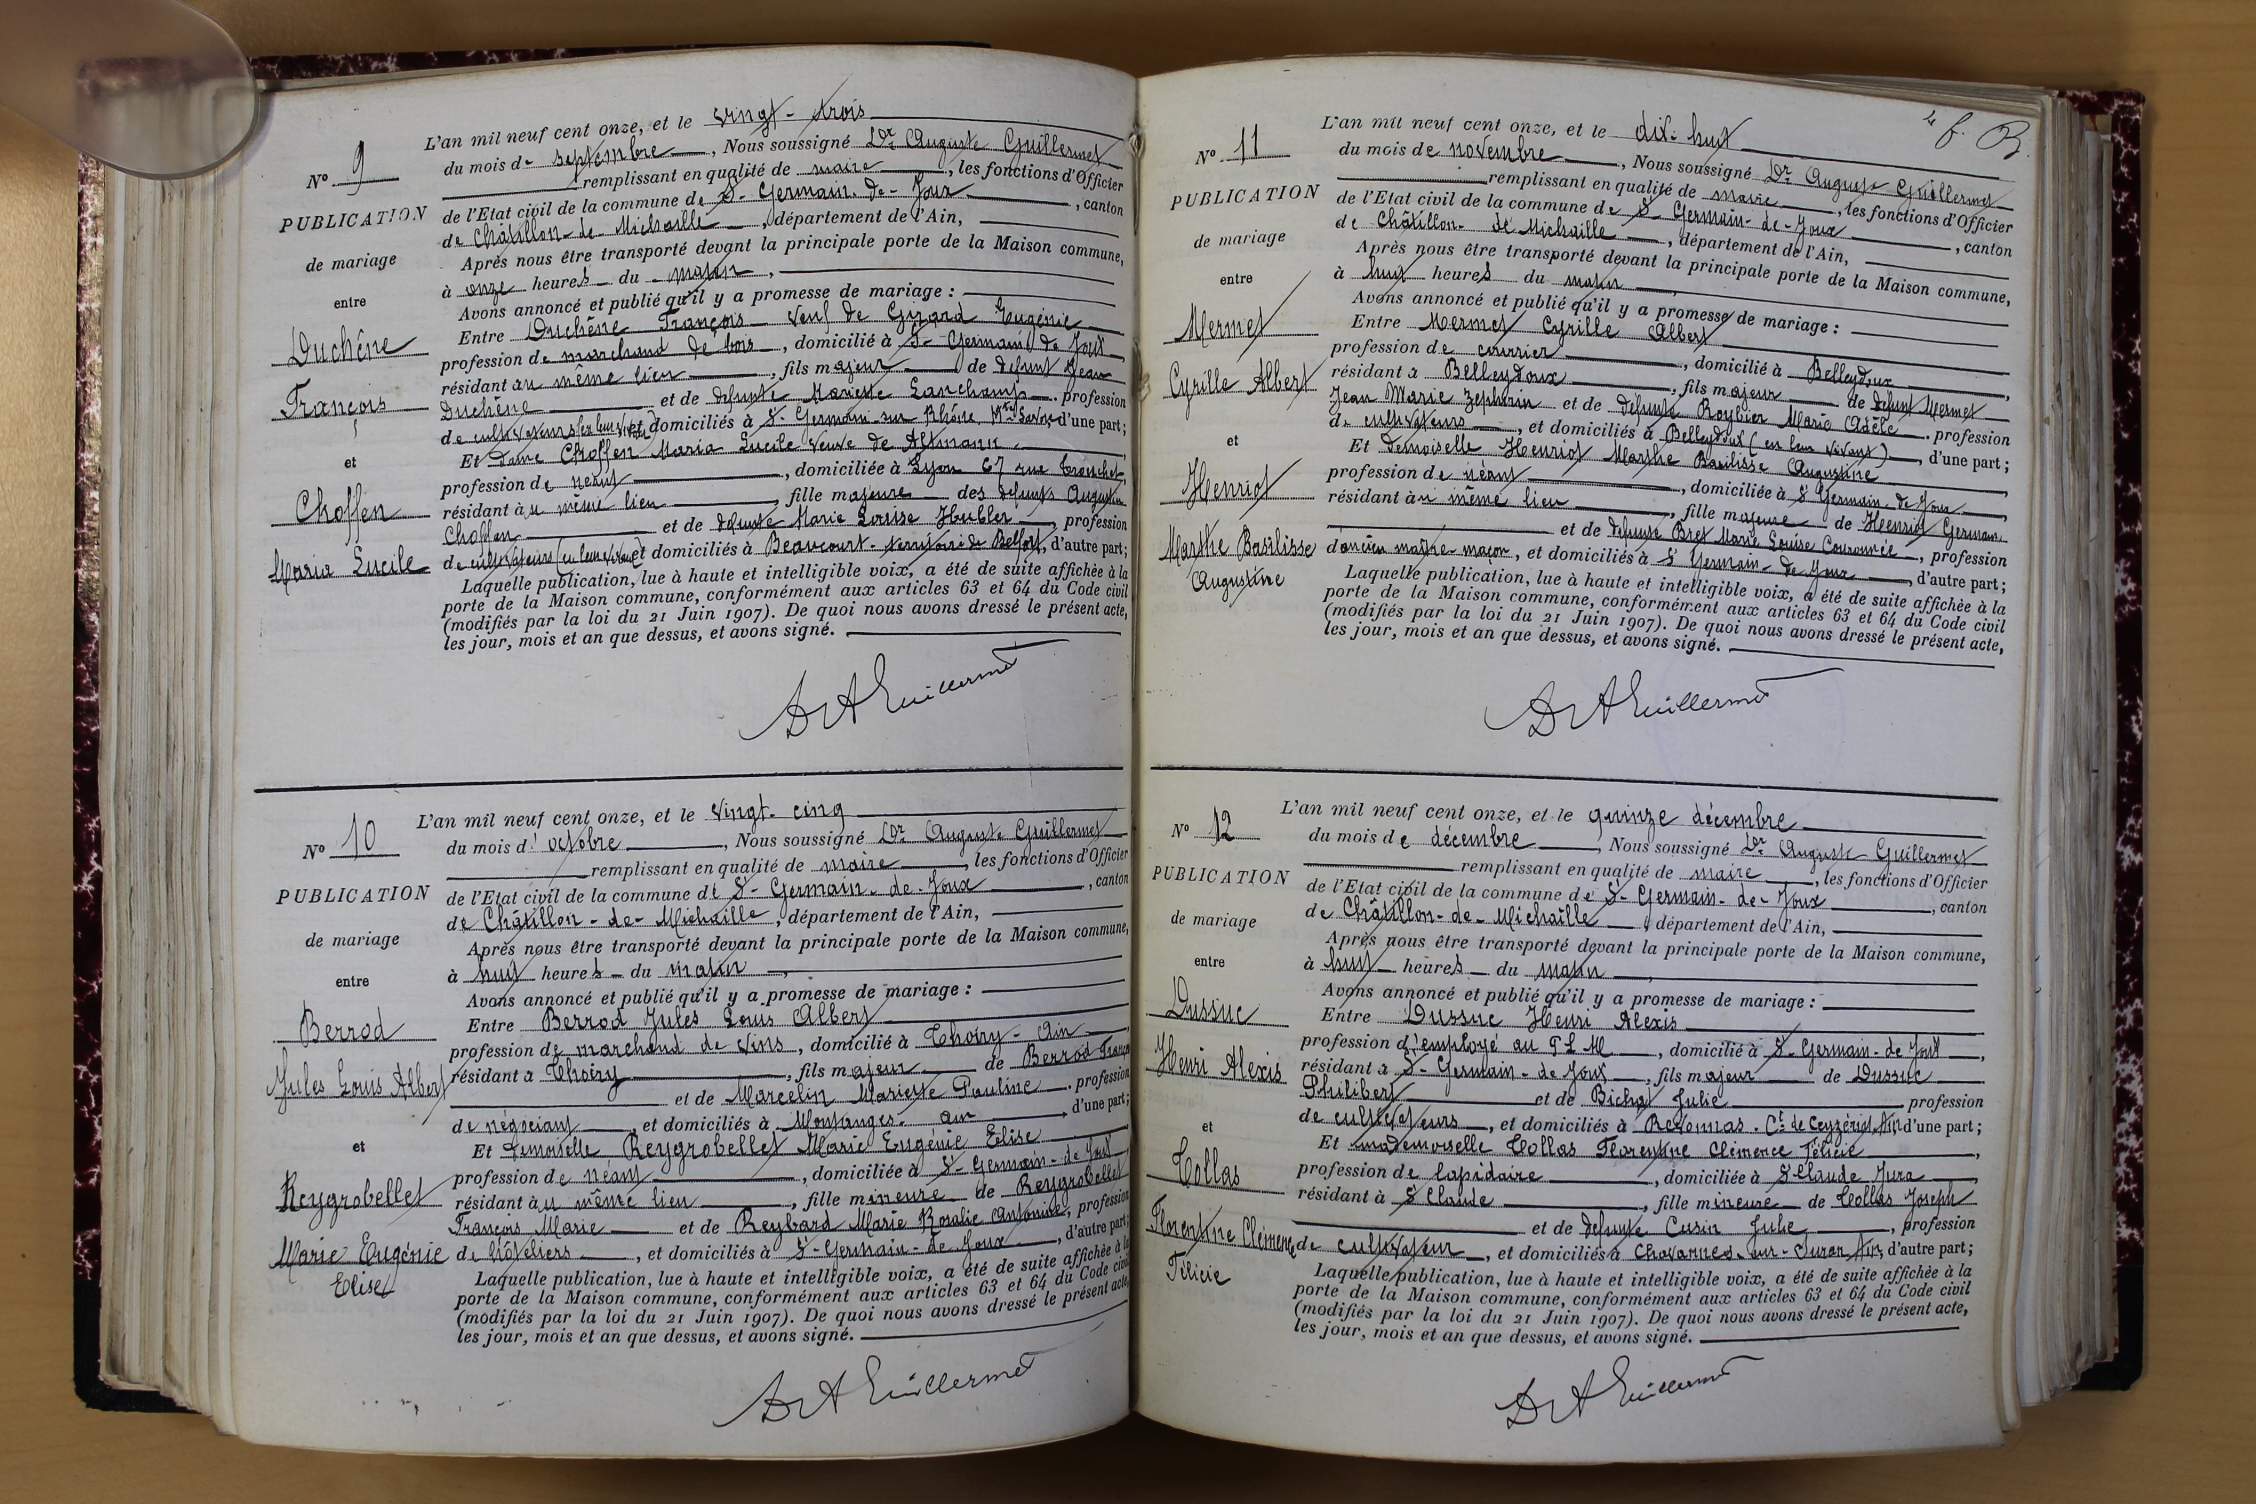 N° 9
PUBLICATION
de mariage
entre
Duchêne
François
et
Choffen
Maria Lucile
L'an mil neuf cent onze, et le vingt-trois
du mois de septembre, Nous soussigné Dr Auguste Guillermet
remplissant en qualité de maire, les fonctions d'Officier
de l'Etat civil de la commune de St-Germain-de-Joux, canton
de Châtillon-de-Michaille, département de l'Ain,
Après nous être transporté devant la principale porte de la Maison commune,
à onze heures du matin,
Avons annoncé et publié qu'il y a promesse de mariage :
Entre Duchêne François veuf de Girard Eugénie
profession de marchand de bois, domicilié à St-Germain de Joux
résidant au même lieu, fils majeur de défunt Jean
Duchêne et de défunte Mariette Lanchamp. profession
de cultivateurs (en leur vivant) et domiciliés à St-Germain-sur-Rhône Hte Savoie d'une part ;
Et dame Choffen Maria Lucile veuve de Altmann
profession de néant, domiciliée à Lyon 67 rue Tronchet,
résidant au même lieu, fille majeure des défunts Augustin
Choffen et de défunte Marie Louise Hubler, profession
de cultivateurs (en leur vivant) et domiciliés à Beaucourt-territoire de Belfort, d'autre part ;
Laquelle publication, lue à haute et intelligible voix, a été de suite affichée à la
porte de la Maison commune, conformément aux articles 63 et 64 du Code civil
(modifiés par la loi du 21 Juin 1907). De quoi nous avons dressé le présent acte,
les jour, mois et an que dessus, et avons signé.
Dr A Guillermet
N° 10
PUBLICATION
de mariage
entre
Berrod
Jules Louis Albert
et
Reygrobellet
Marie Eugénie
Elise
L'an mil neuf cent onze, et le vingt-cinq
du mois d'octobre, Nous soussigné Dr Auguste Guillermet
remplissant en qualité de maire, les fonctions d'Officier
de l'Etat civil de la commune de St-Germain-de-Joux, canton
de Châtillon-de-Michaille, département de l'Ain,
Après nous être transporté devant la principale porte de la Maison commune,
à huit heures du matin,
Avons annoncé et publié qu'il y a promesse de mariage :
Entre Berrod Jules Louis Albert
profession de marchand de vins, domicilié à Thoiry-Ain,
résidant à Thoiry, fils majeur de Berrod
et de Marcelin Mariette Pauline. profession
de négociant, et domiciliés à Montanges. ain, d'une part ;
Et Demoiselle Reygrobellet Marie Eugénie Elise
profession de néant, domiciliée à St-Germain-de Joux,
résidant au même lieu, fille mineure de Reygrobellet
François Marie et de Reybard Marie Rosalie Antonine, profession
de hôteliers, et domiciliés à St-Germain-de-Joux, d'autre part ;
Laquelle publication, lue à haute et intelligible voix, a été de suite affichée à la
porte de la Maison commune, conformément aux articles 63 et 64 du Code civil
(modifiés par la loi du 21 Juin 1907). De quoi nous avons dressé le présent acte,
les jour, mois et an que dessus, et avons signé.
Dr A Guillermet
N° 11
PUBLICATION
de mariage
entre
Mermet
Cyrille Albert
et
Henriot
Marthe Basilisse
Augustine
L'an mil neuf cent onze, et le dix-huit
du mois de novembre, Nous soussigné Dr Auguste Guillermet
remplissant en qualité de maire, les fonctions d'Officier
de l'Etat civil de la commune de St Germain-de-Joux, canton
de Châtillon-de Michaille, département de l'Ain,
Après nous être transporté devant la principale porte de la Maison commune,
à huit heures du matin,
Avons annoncé et publié qu'il y a promesse de mariage :
Entre Mermet Cyrille Albert
profession de courrier, domicilié à Belleydoux
résidant à Belleydoux, fils majeur de défunt Mermet
Jean Marie Zéphirin et de défunte Roybier Marie Adèle. profession
de cultivateurs, et domiciliés à Belleydoux (en leur vivant), d'une part ;
Et demoiselle Henriot Marthe Basilisse Augustine
profession de néant, domiciliée à St Germain-de Joux,
résidant au même lieu, fille majeure de Henriot Germain
et de défunte Bret Marie Louise Couronnée, profession
d'ancien maître-maçon, et domiciliés à St Germain-de-Joux, d'autre part ;
Laquelle publication, lue à haute et intelligible voix, a été de suite affichée à la
porte de la Maison commune, conformément aux articles 63 et 64 du Code civil
(modifiés par la loi du 21 Juin 1907). De quoi nous avons dressé le présent acte,
les jour, mois et an que dessus, et avons signé.
Dr A Guillermet
N° 12
PUBLICATION
de mariage
entre
Dussuc
Henri Alexis
et
Collas
Florentine Clémence
Félicie
L'an mil neuf cent onze, et le quinze décembre
du mois de décembre, Nous soussigné Dr Auguste Guillermet
remplissant en qualité de maire, les fonctions d'Officier
de l'Etat civil de la commune de St-Germain-de-Joux, canton
de Châtillon-de-Michaille, département de l'Ain,
Après nous être transporté devant la principale porte de la Maison commune,
à huit heures du matin,
Avons annoncé et publié qu'il y a promesse de mariage :
Entre Dussuc Henri Alexis
profession d'employé au P L M, domicilié à St-Germain-de Joux,
résidant à St-Germain-de Joux, fils majeur de Dussuc
Philibert et de Bichat Julie profession
de cultivateurs, et domiciliés à Revonnas. Ct de Ceyzériat, Ain d'une part ;
Et mademoiselle Collas Florentine Clémence Félicie,
profession de lapidaire, domiciliée à St-Claude Jura,
résidant à St Claude, fille mineure de Collas Joseph
et de défunte Cusin Julie, profession
de cultivateur, et domiciliés à Chavannes-sur-Suran Ain, d'autre part ;
Laquelle publication, lue à haute et intelligible voix, a été de suite affichée à la
porte de la Maison commune, conformément aux articles 63 et 64 du Code civil
(modifiés par la loi du 21 Juin 1907). De quoi nous avons dressé le présent acte,
les jour, mois et an que dessus, et avons signé.
Dr A Guillermet